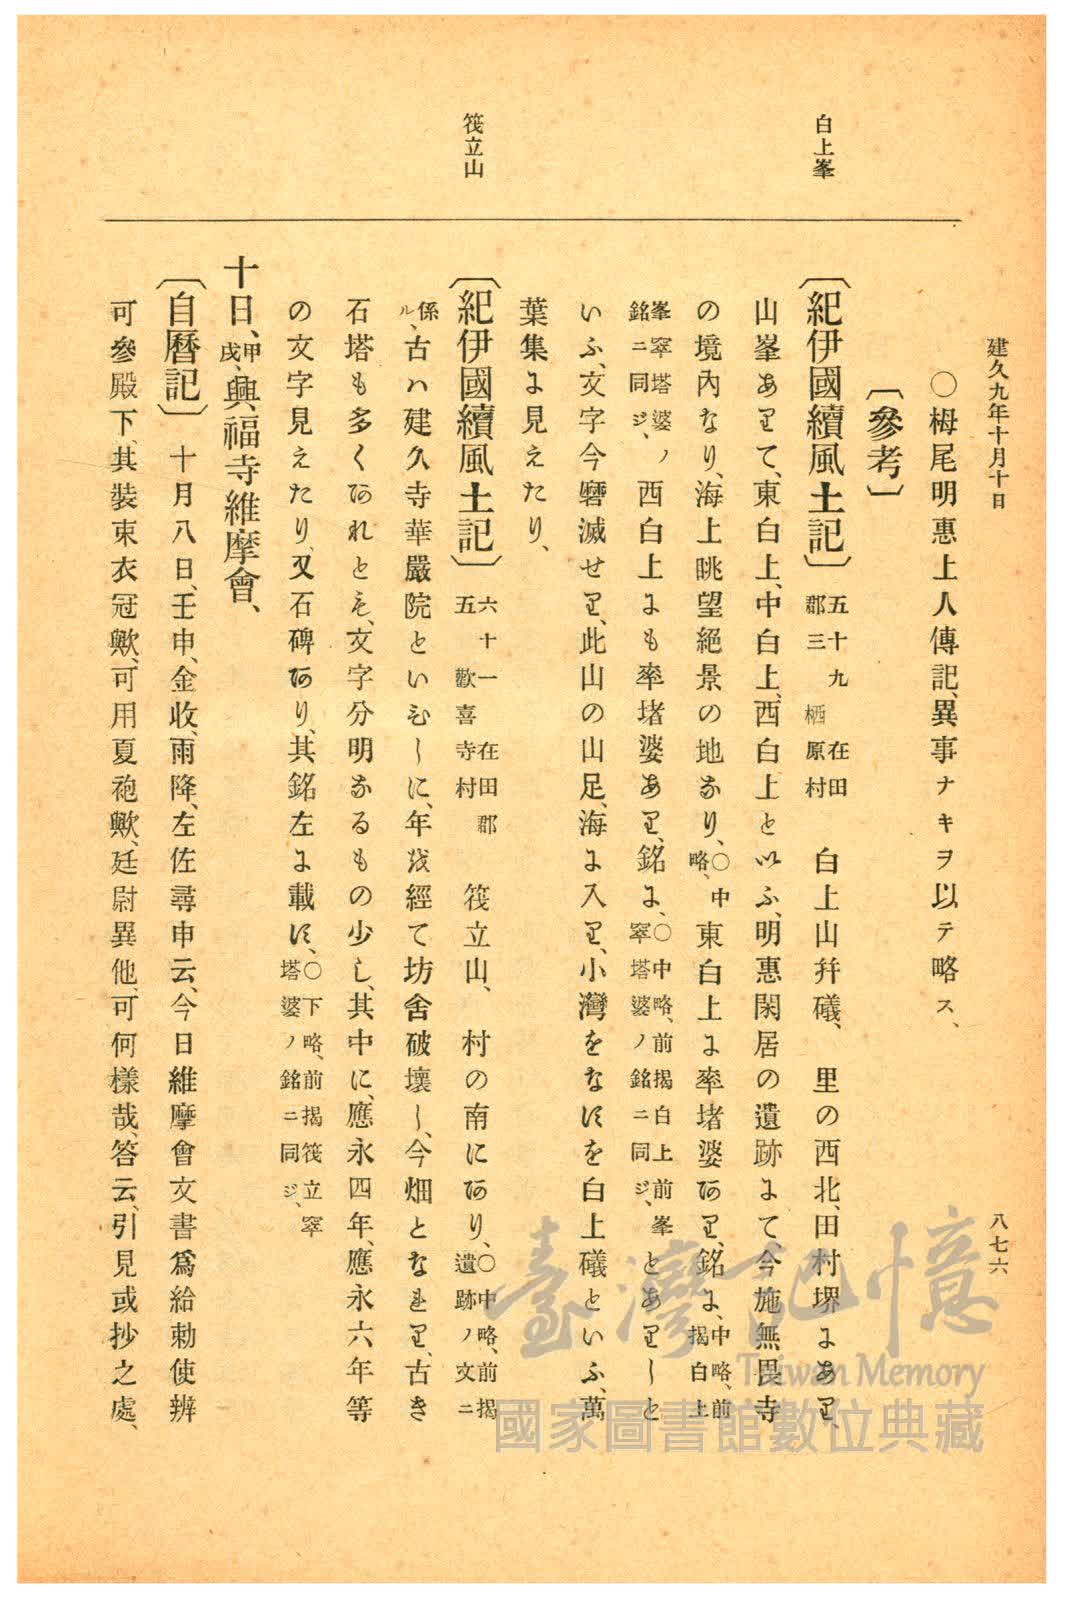 建久九年十月十日
八七六
白上峯
筏立山
○栂尾明惠上人傳記、異事ナキヲ以テ略ス、
〔參考〕
〔紀伊國續風土記〕五十九 在田郡三 栖原村 白上山幷礒、 里の西北、田村堺にあり、
山峯ありて、東白上、中白上、西白上といふ、明惠閑居の遺跡にて今施無畏寺
の境內なり、海上眺望絕景の地なり、○中略、東白上に率堵婆あり、銘に、中略、前揭白上
峯窣塔婆ノ銘ニ同ジ、西白上にも率堵婆あり、銘に、○中略、前揭白上前峯窣塔婆ノ銘ニ同ジ、とありしと
いふ、文字今磨滅せり、此山の山足、海に入り、小灣をなすを白上礒といふ、萬
葉集に見えたり、
〔紀伊國續風土記〕六十一 在田郡五 歡喜寺村 筏立山、 村の南にあり、○中略、前揭遺跡ノ文ニ
係ル、古ハ建久寺華嚴院といひしに、年を經て坊舍破壞し、今畑となれり、古き
石塔も多くあれとも、文字分明なるもの少し、其中に、應永四年、應永六年等
の文字見えたり、又石碑あり、其銘左に載す、○下略、前揭筏立窣塔婆ノ銘ニ同ジ、
十日、甲戌、興福寺維摩會、
〔自曆記〕十月八日、壬申、金收、雨降、左佐尋申云、今日維摩會文書爲給勅使辨
可參殿下、其裝束衣冠歟、可用夏袍歟、廷尉異他、可何樣哉、答云、引見或抄之處、
臺灣記憶
Taiwan Memory
國家圖書館數位典藏